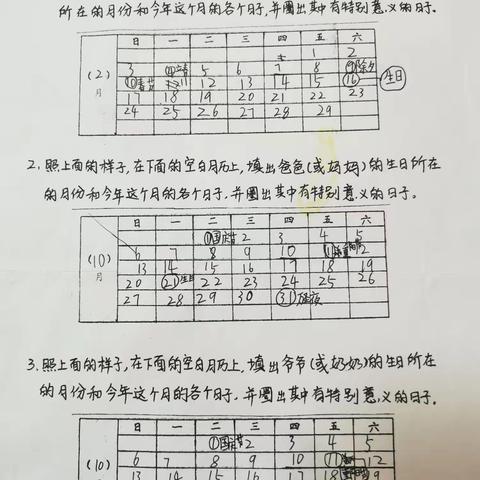 所在的月份和今年这个月的各个日子,并圈出其中有特别意义的日子.
日 一 二 三 四 五 六
1 2
(2)月 3 ④ 5 6 7 8 ⑨除夕
⑩春节 11 12 13 14 15 ⑯ 生日
17 18 19 20 21 22 23
24 25 26 27 28 29
2.照上面的样子,在下面的空白月历上,填出爸爸(或妈妈)的生日所在
的月份和今年这个月的各个日子,并圈出其中有特别意义的日子。
日 一 二 三 四 五 六
①国庆节 2 3 4 5
(10)月 6 7 8 9 10 ⑪重阳节 12
13 14 15 16 17 18 19
20 ㉑生日 22 23 24 25 26
27 28 29 30 ㉛
3.照上面的样子,在下面的空白月历上,填出爷爷(或奶奶)的生日所在
的月份和今年这个月的各个日子,并圈出其中有特别意义的日子.
日 一 二 三 四 五 六
①国庆节 2 3 4 5
(10) 6 7 8 9 10 ⑪ 12
13 14 15 16 17 18 19